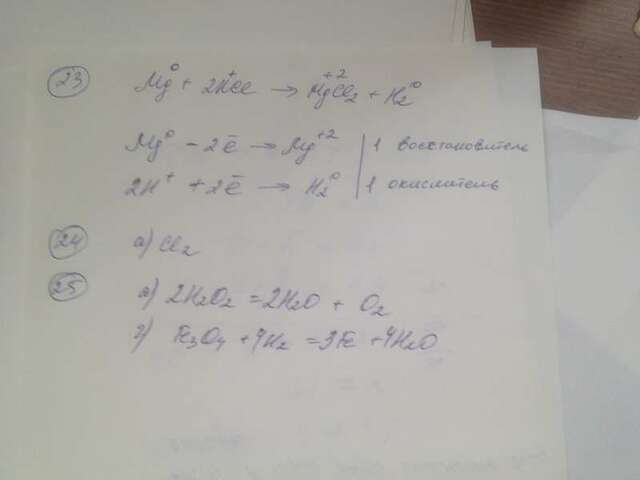 23 Mg⁰ + 2H⁺Cl → Mg⁺²Cl₂ + H₂⁰
Mg⁰ - 2ē → Mg⁺² | 1 восстановитель
2H⁺ + 2ē → H₂⁰ | 1 окислитель
24 а) Cl₂
25 а) 2H₂O₂ = 2H₂O + O₂
г) Fe₃O₄ + 4H₂ = 3Fe + 4H₂O